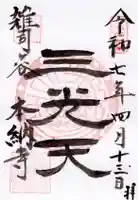 令和七年四月十三日拝
三光天
雑司ヶ谷 本納寺